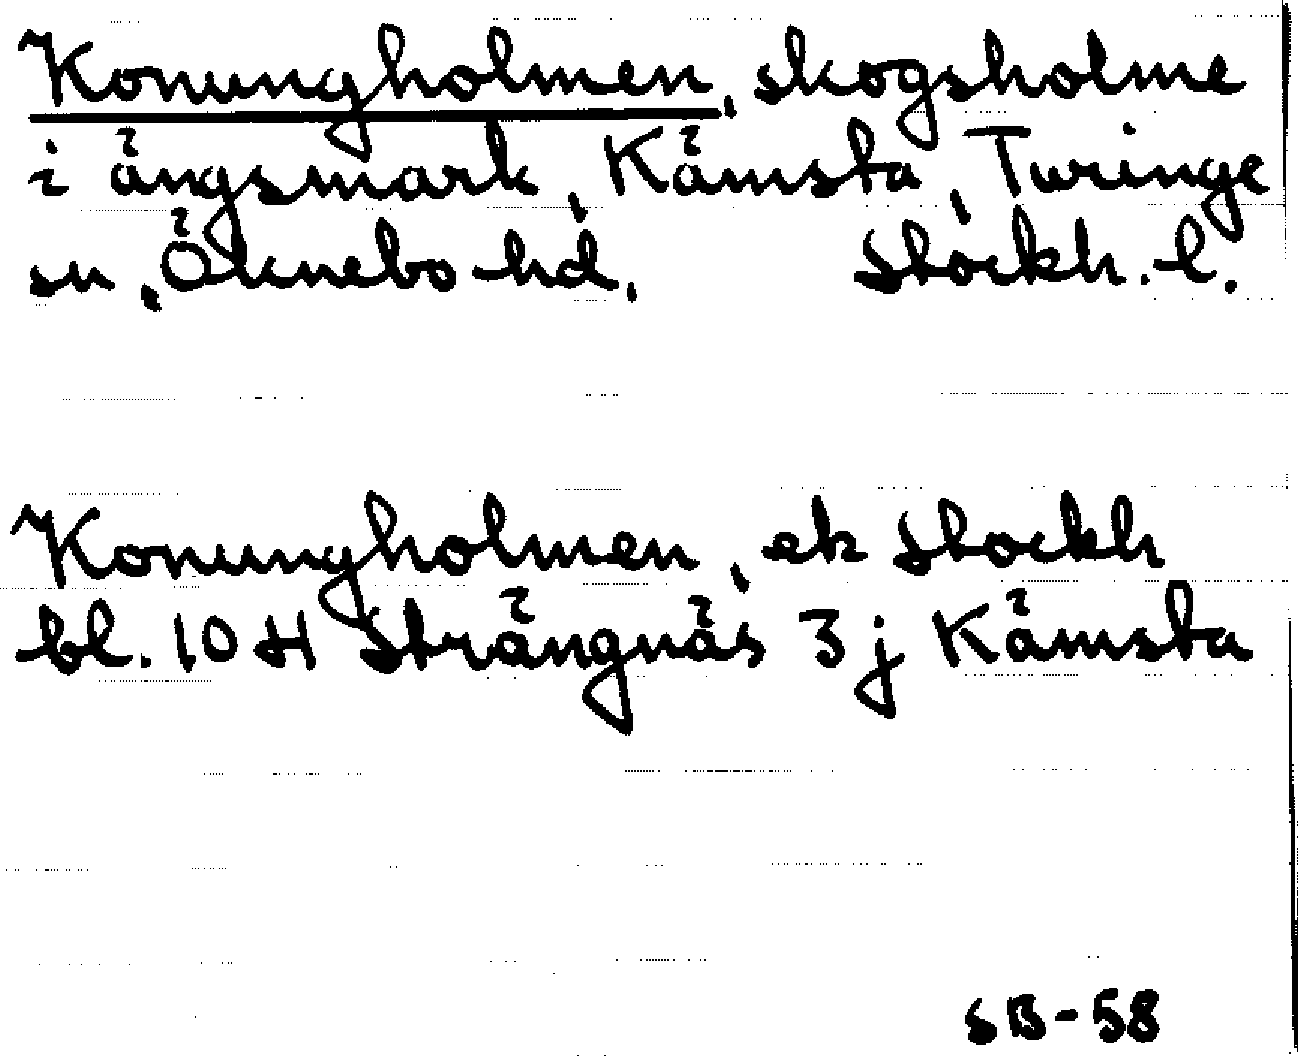 Konungholmen, skogsholme
i ängsmark, Kämsta, Turinge
sn, Öknebo hd. Stockh. l.
Konungholmen, ek Stockh
bl. 10 H Strängnäs 3 j Kämsta
SB-58